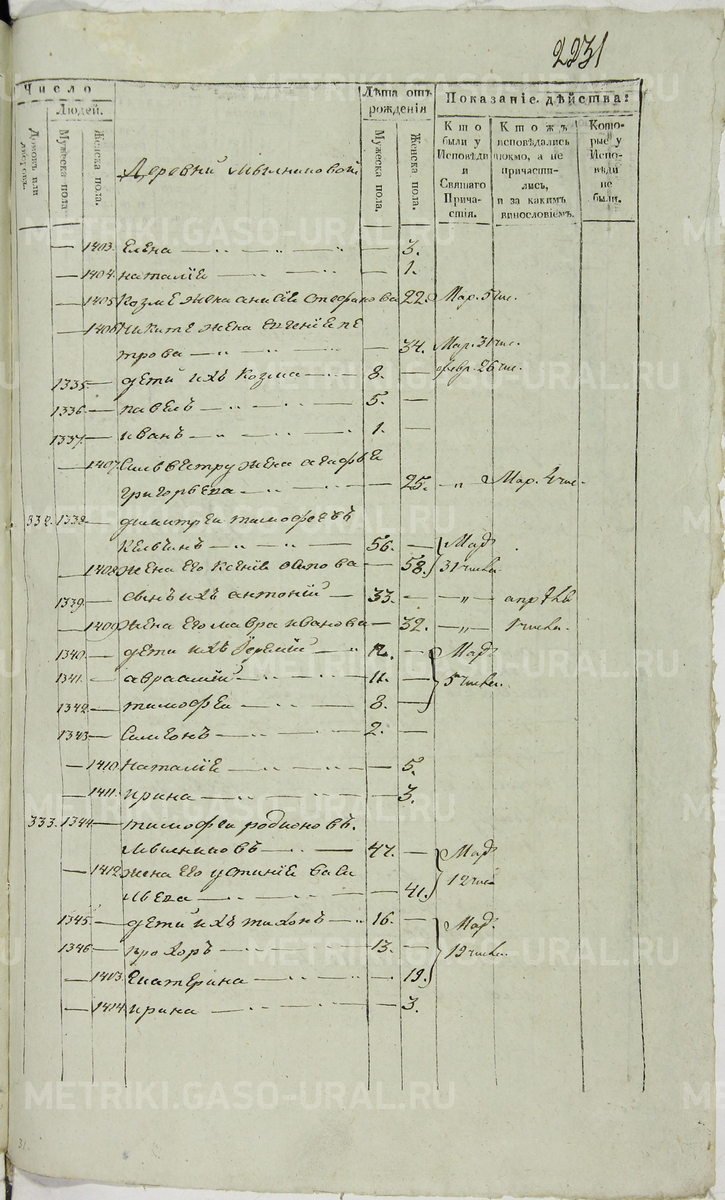 2231
Число
Людей.
Домовъ или дворовъ.
Мужеска пола.
Женска пола.
Лѣта отъ рожденія
Мужеска пола.
Женска пола.
Показаніе дѣйства:
Кто были у Исповѣди и Святаго Причастія.
Ктожъ исповѣдались токмо, а не причастились, и за какимъ винословіемъ.
Которые у Исповѣди не были.
Деревни
— 1403. Елена — — 3.
— 1404. Наталіѣ — — 1.
— 1405 Козмѣ жена Анисіѣ 22. Мар. 5 чис.
— 1406 Никитѣ жена Евгеніѣ Пе
трова — — 34. Мар. 31 чис.
1335 — дети ихъ Козма — 8. — Февр. 26 чис.
1336 — Павелъ — 5. —
1337 — Иванъ — 1. —
— 1407 Силвестру жена Агафьѣ
Григорьева — — 25. — „ — Мар. чис.
332. 1338 — Димитреи Тимофеевъ
— 56. — Мар.
— 1408 жена его Ксеніѣ — 58. 31 числа
1339 — сынъ ихъ Антоній — 33. — — „ —
— 1409 жена его Мавра Иванова — 32. — „ — числа.
1340 — дети ихъ Іеремій — 12. — Мар.
1341. — Авраамій — 11. — 5 числа.
1342 — Тимофеи — 8. —
1343 — Симеонъ — 2. —
— 1410 Наталіѣ — — 5.
— 1411. Ирина — — 3.
333. 1344 — Тимофеи Родионовъ.
47. — Мар.
— 1412 жена его Устиніѣ Васи
льева — — 41. 12 числ
1345 — дети ихъ Тихонъ — 16. — Мар.
1346 — Прохоръ — 13. — 19 числа.
— 1413 Екатерина — — 19.
— 1414 Ирина — — 3.
METRIKI.GASO-URAL.RU